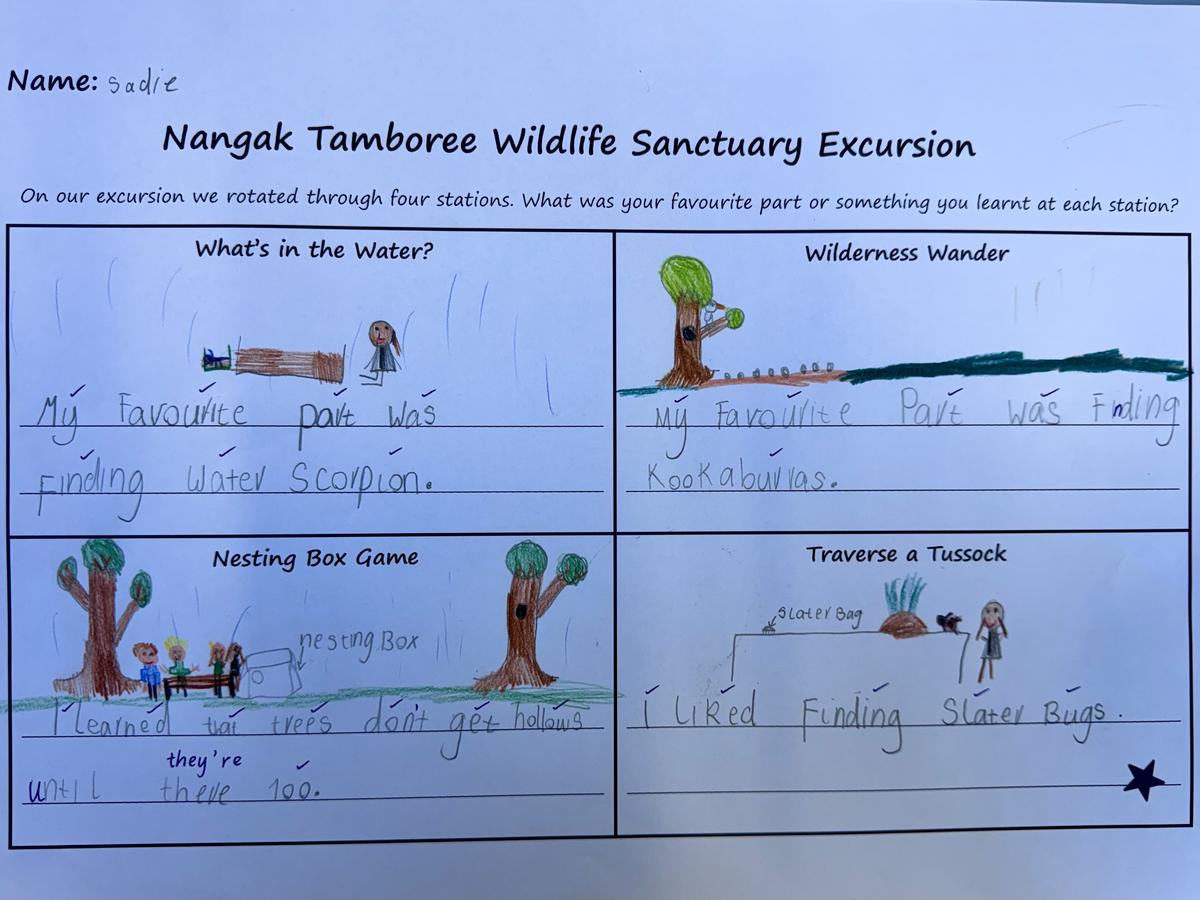 Name: sadie
Nangak Tamboree Wildlife Sanctuary Excursion
On our excursion we rotated through four stations. What was your favourite part or something you learnt at each station?
What's in the Water?
My Favourite part was
Finding Water Scorpion.
Wilderness Wander
My Favourite Part was Finding
Kookaburras.
Nesting Box Game
nesting Box
I learned that trees don't get hollows
they're
until there 100.
Traverse a Tussock
Slater Bag
I liked Finding Slater Bugs.